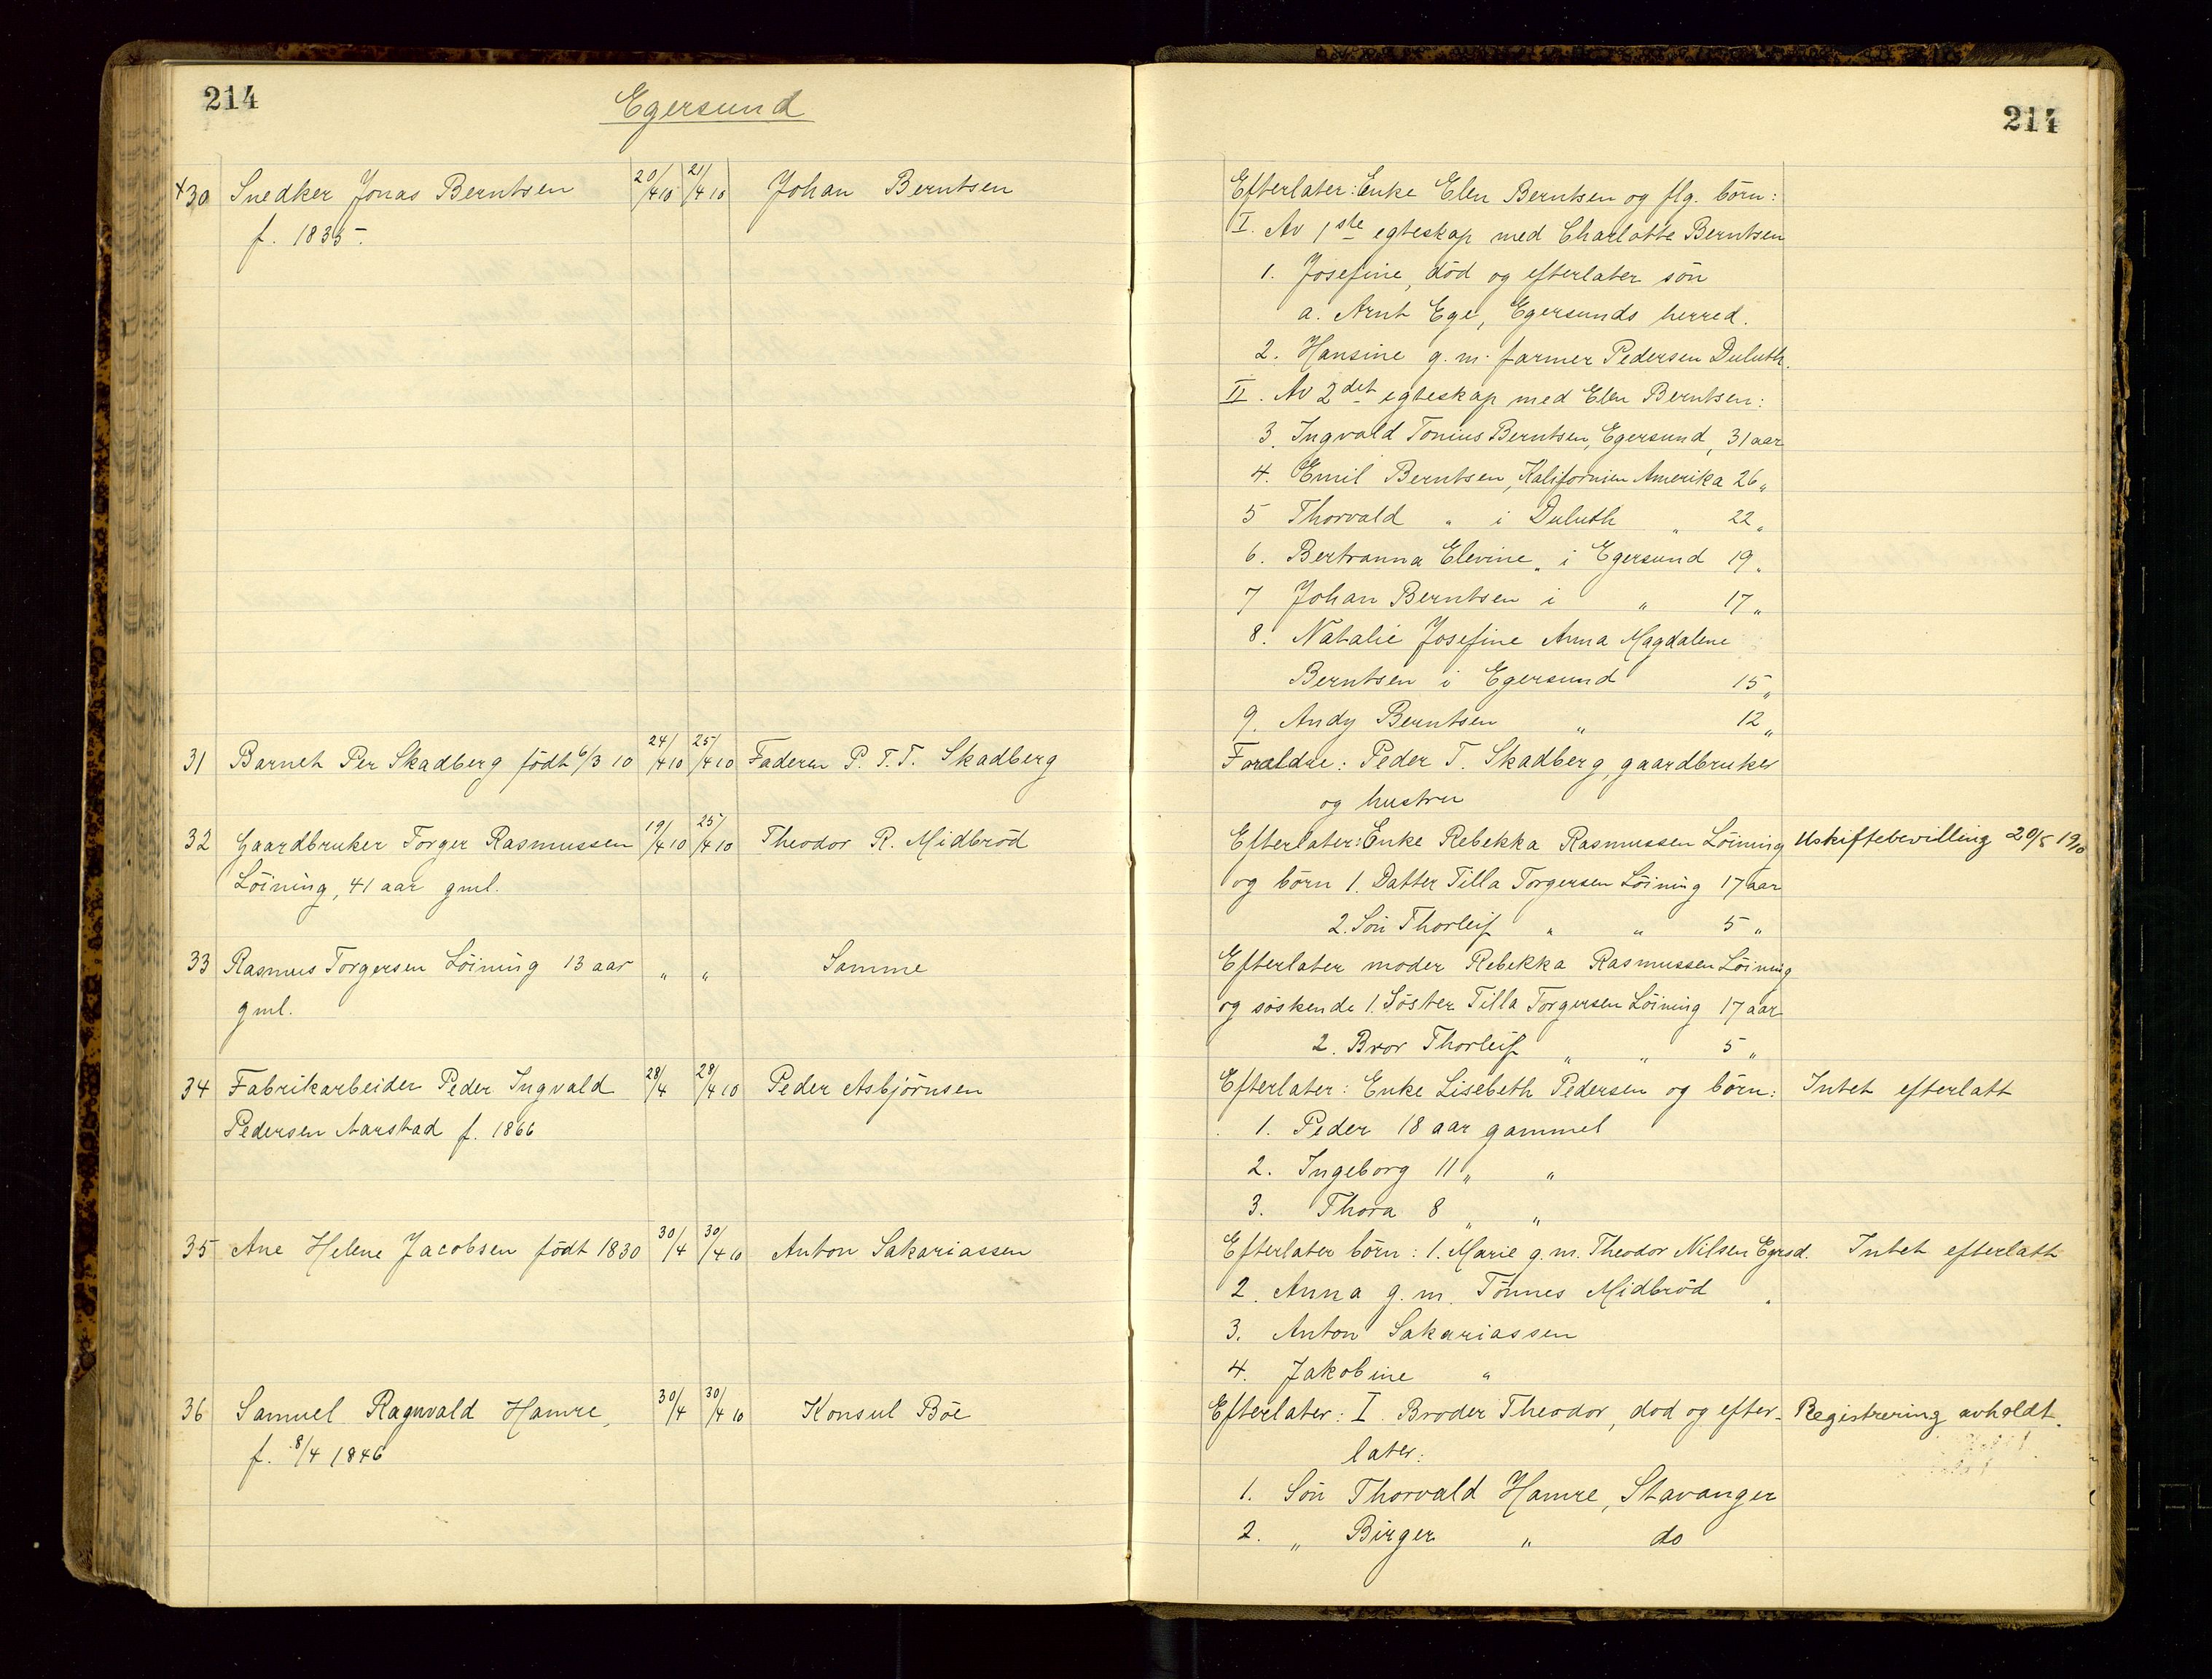 214
Egersund
+30 Snedker Jonas Berntsen 20/4 10 21/4 10 Johan Berntsen
f. 1835.
31 Barnet Per Skadberg født 6/3 10 24/4 10 25/4 10 Faderen P. T. T. Skadberg
32 Gaardbruker Torger Rasmussen 19/4 10 25/4 10 Theodor R. Midbrød
Løining, 41 aar gml.
33 Rasmus Torgersen Løining 13 aar " " Samme
gml.
34 Fabrikarbeider Peder Ingvald 28/4 28/4 10 Peder Asbjørnsen
Pedersen Aarstad f. 1866
35 Ane Helene Jacobsen født 1830 30/4 30/4 10 Anton Sakariassen
36 Samuel Ragnvald Hamre, 30/4 30/4 10 Konsul Böe
f. 8/4 1846
214
Efterlater: Enke Elen Berntsen og flg. börn:
I. Av 1ste egteskap med Charlotte Berntsen
1. Josefine, död og efterlater sön
a. Arnt Ege, Egersunds herred.
2. Hansine g. m. farmer Pedersen Duluth.
II. Av 2det egteskap med Elen Berntsen:
3. Ingvald Tonius Berntsen, Egersund, 31 aar
4. Emil Berntsen, Kalifornien Amerika 26 "
5 Thorvald " i Duluth " 22 "
6. Bertranna Elevine " i Egersund 19 "
7 Johan Berntsen i " 17 "
8. Natalie Josefine Anna Magdalene
Berntsen i Egersund 15 "
9. Andy Berntsen " 12 "
Forældre: Peder T. Skadberg, gaardbruker
og hustru
Efterlater: Enke Rebekka Rasmussen Løining Uskiftebevilling 20/5 1910
og börn 1. Datter Tilla Torgersen Löining 17 aar
2. Sön Thorleif " " 5 "
Efterlater moder Rebekka Rasmussen Löining
og söskende 1. Söster Tilla Torgersen Löining 17 aar
2. Bror Thorleif " " 5 "
Efterlater: Enke Lisebeth Pedersen og börn: Intet efterlatt
1. Peder 18 aar gammel
2. Ingeborg 11 " "
3. Thora 8 " "
Efterlater börn: 1. Marie g. m. Theodor Nilsen Egrsd. Intet efterlatt
2. Anna g. m. Tönnes Midbröd "
3. Anton Sakariassen
4. Jakobine "
Efterlater: I. Broder Theodor, död og efter- Registrering avholdt.
later:
1. Sön Thorvald Hamre, Stavanger
2. " Birger " do